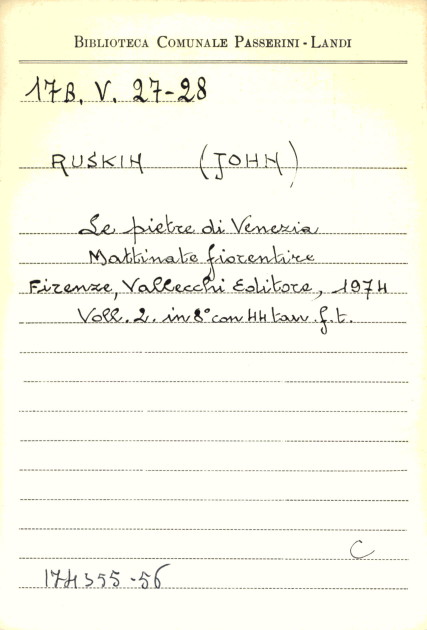 BIBLIOTECA COMUNALE PASSERINI-LANDI
17B. V. 27-28
RUSKIN (JOHN)
Le pietre di Venezia
Mattinate fiorentine
Firenze, Vallecchi Editore, 1974
Voll. 2. in 8° con 44 tav. f.t.
C
174355-56